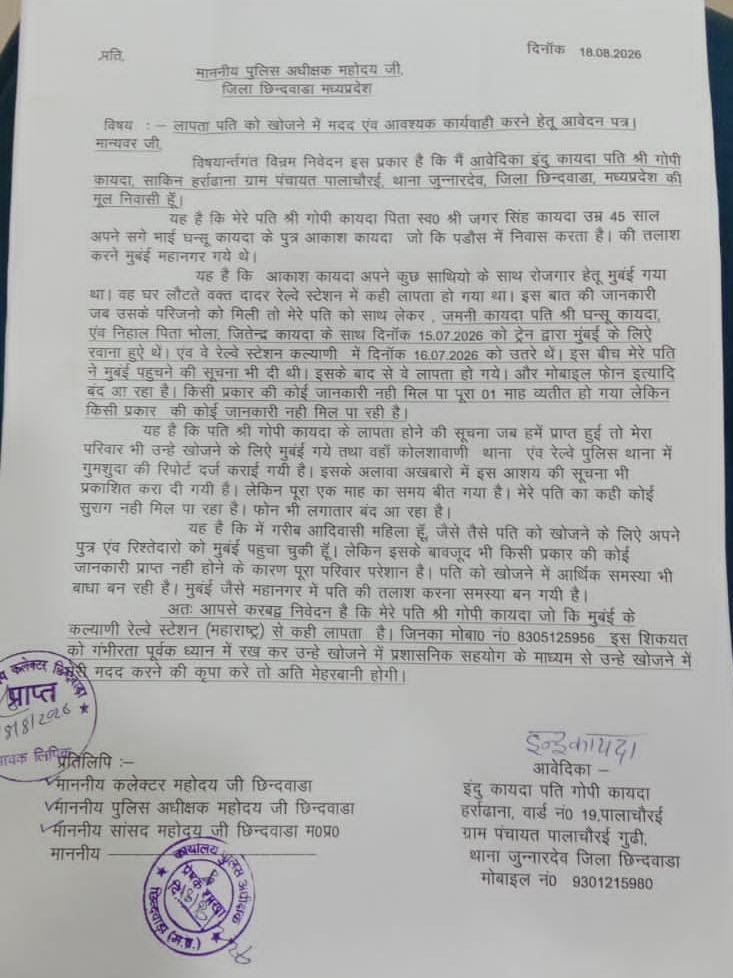 प्रति,
दिनॉक 18.08.2026
माननीय पुलिस अधीक्षक महोदय जी,
जिला छिन्दवाडा मध्यप्रदेश
विषय : – लापता पति को खोजने में मदद एंव आवश्यक कार्यवाही करने हेतू आवेदन पत्र।
मान्यवर जी,
विषयार्न्तगंत विन्रम निवेदन इस प्रकार है कि मैं आवेदिका इंदु कायदा पति श्री गोपी
कायदा, साकिन हर्राढाना ग्राम पंचायत पालाचौरई, थाना जुन्नारदेव, जिला छिन्दवाडा, मध्यप्रदेश की
मूल निवासी हूँ।
यह है कि मेरे पति श्री गोपी कायदा पिता स्व0 श्री जगर सिंह कायदा उम्र 45 साल
अपने सगे भाई घन्सू कायदा के पुत्र आकाश कायदा जो कि पडौस में निवास करता है। की तलाश
करने मुबंई महानगर गये थे।
यह है कि आकाश कायदा अपने कुछ साथियो के साथ रोजगार हेतू मुबंई गया
था। वह घर लौटते वक्त दादर रेल्वे स्टेशन में कही लापता हो गया था। इस बात की जानकारी
जब उसके परिजनो को मिली तो मेरे पति को साथ लेकर , जमनी कायदा पति श्री घन्सू कायदा,
एंव निहाल पिता भोला, जितेन्द्र कायदा के साथ दिनॉक 15.07.2026 को ट्रेन द्वारा मुंबई के लिऐ
रवाना हुऐ थें। एंव वे रेल्वे स्टेशन कल्याणी में दिनॉक 16.07.2026 को उतरे थें। इस बीच मेरे पति
ने मुबंई पहुचने की सूचना भी दी थी। इसके बाद से वे लापता हो गये। और मोबाइल फोन इत्यादि
बंद आ रहा है। किसी प्रकार की कोई जानकारी नही मिल पा पूरा 01 माह व्यतीत हो गया लेकिन
किसी प्रकार की कोई जानकारी नही मिल पा रही है।
यह है कि पति श्री गोपी कायदा के लापता होने की सूचना जब हमें प्राप्त हुई तो मेरा
परिवार भी उन्हे खोजने के लिऐ मुबंई गये तथा वहॉ कोलशावाणी थाना एंव रेल्वे पुलिस थाना में
गुमशुदा की रिपोर्ट दर्ज कराई गयी है। इसके अलावा अखबारो में इस आशय की सूचना भी
प्रकाशित करा दी गयी है। लेकिन पूरा एक माह का समय बीत गया है। मेरे पति का कही कोई
सुराग नही मिल पा रहा है। फोन भी लगातार बंद आ रहा है।
यह है कि में गरीब आदिवासी महिला हूँ, जैसे तैसे पति को खोजने के लिऐ अपने
पुत्र एंव रिश्तेदारो को मुबंई पहुचा चुकी हूँ। लेकिन इसके बावजूद भी किसी प्रकार की कोई
जानकारी प्राप्त नही होने के कारण पूरा परिवार परेशान है। पति को खोजने में आर्थिक समस्या भी
बाधा बन रही है। मुबंई जैसे महानगर में पति की तलाश करना समस्या बन गयी है।
अतः आपसे करबद्व निवेदन है कि मेरे पति श्री गोपी कायदा जो कि मुबंई के
कल्याणी रेल्वे स्टेशन (महाराष्ट्र) से कही लापता है। जिनका मोबा0 नं0 8305125956 इस शिकयत
को गंभीरता पूर्वक ध्यान में रख कर उन्हे खोजने में प्रशासनिक सहयोग के माध्यम से उन्हे खोजने में
मदद करने की कृपा करे तो अति मेहरबानी होगी।
कलेक्टर
प्राप्त
18/8/2026
आवक लिपिक
प्रतिलिपि :–
माननीय कलेक्टर महोदय जी छिन्दवाडा
माननीय पुलिस अधीक्षक महोदय जी छिन्दवाडा
माननीय सांसद महोदय जी छिन्दवाडा म0प्र0
माननीय
इन्दु कायदा
आवेदिका –
इंदु कायदा पति गोपी कायदा
हर्राढाना, वार्ड नं0 19,पालाचौरई
ग्राम पंचायत पालाचौरई गुढी,
थाना जुन्नारदेव जिला छिन्दवाडा
मोबाइल नं0 9301215980
कार्यालय पुलिस अधीक्षक
छिन्दवाड़ा (म.प्र.)